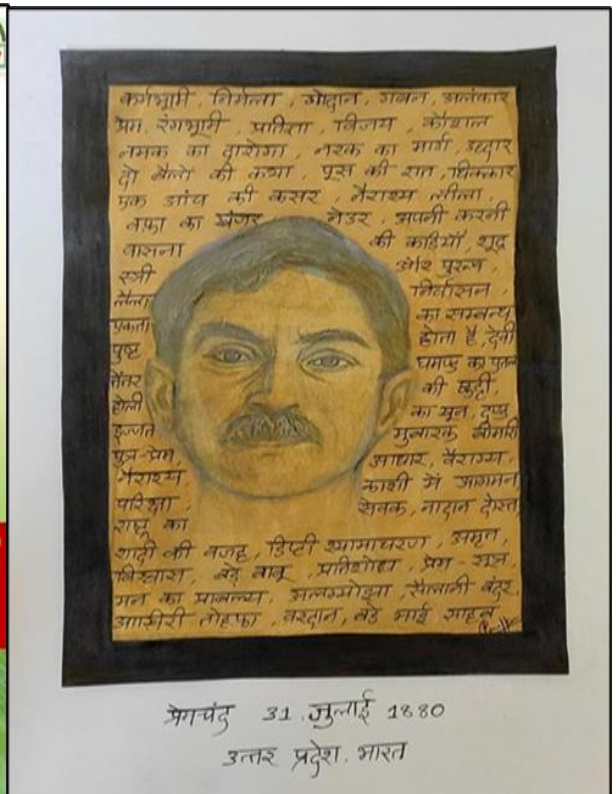 कर्मभूमि, निर्मला, गोदान, गबन, अलंकार
प्रेम, रंगभूमि, प्रतिज्ञा, विजय, कौशल
नमक का दारोगा, नरक का मार्ग, उद्धार
दो बैलो की कथा, पूस की रात, धिक्कार
एक आंच की कसर, नैराश्य लीला,
वफ़ा का खंजर, नेउर, अपनी करनी
वासना की कड़ियाँ, शूद्र
स्त्री और पुरूष,
लैला निर्वासन,
एकता का सम्बन्ध
पुष्ट होता है, देवी
तेंतर घमण्ड का पुतला
होली की छुट्टी,
इज्जत का खून, दण्ड
पुत्र-प्रेम, मुबारक बीमारी
नैराश्य आधार, वैराग्य,
परिक्षा, काशी में आगमन
राष्ट्र का सेवक, नादान दोस्त
शादी की वजह, डिप्टी श्यामाचरण, अमृत,
विश्वास, बड़े बाबू, प्रतिशोध, प्रेम-सूत्र,
मन का प्राबल्य, अलग्योझा, सैलानी बंदर,
आख़ीरी तोहफ़ा, वरदान, बड़े भाई साहब
प्रेमचंद 31. जुलाई 1880
उत्तर प्रदेश. भारत